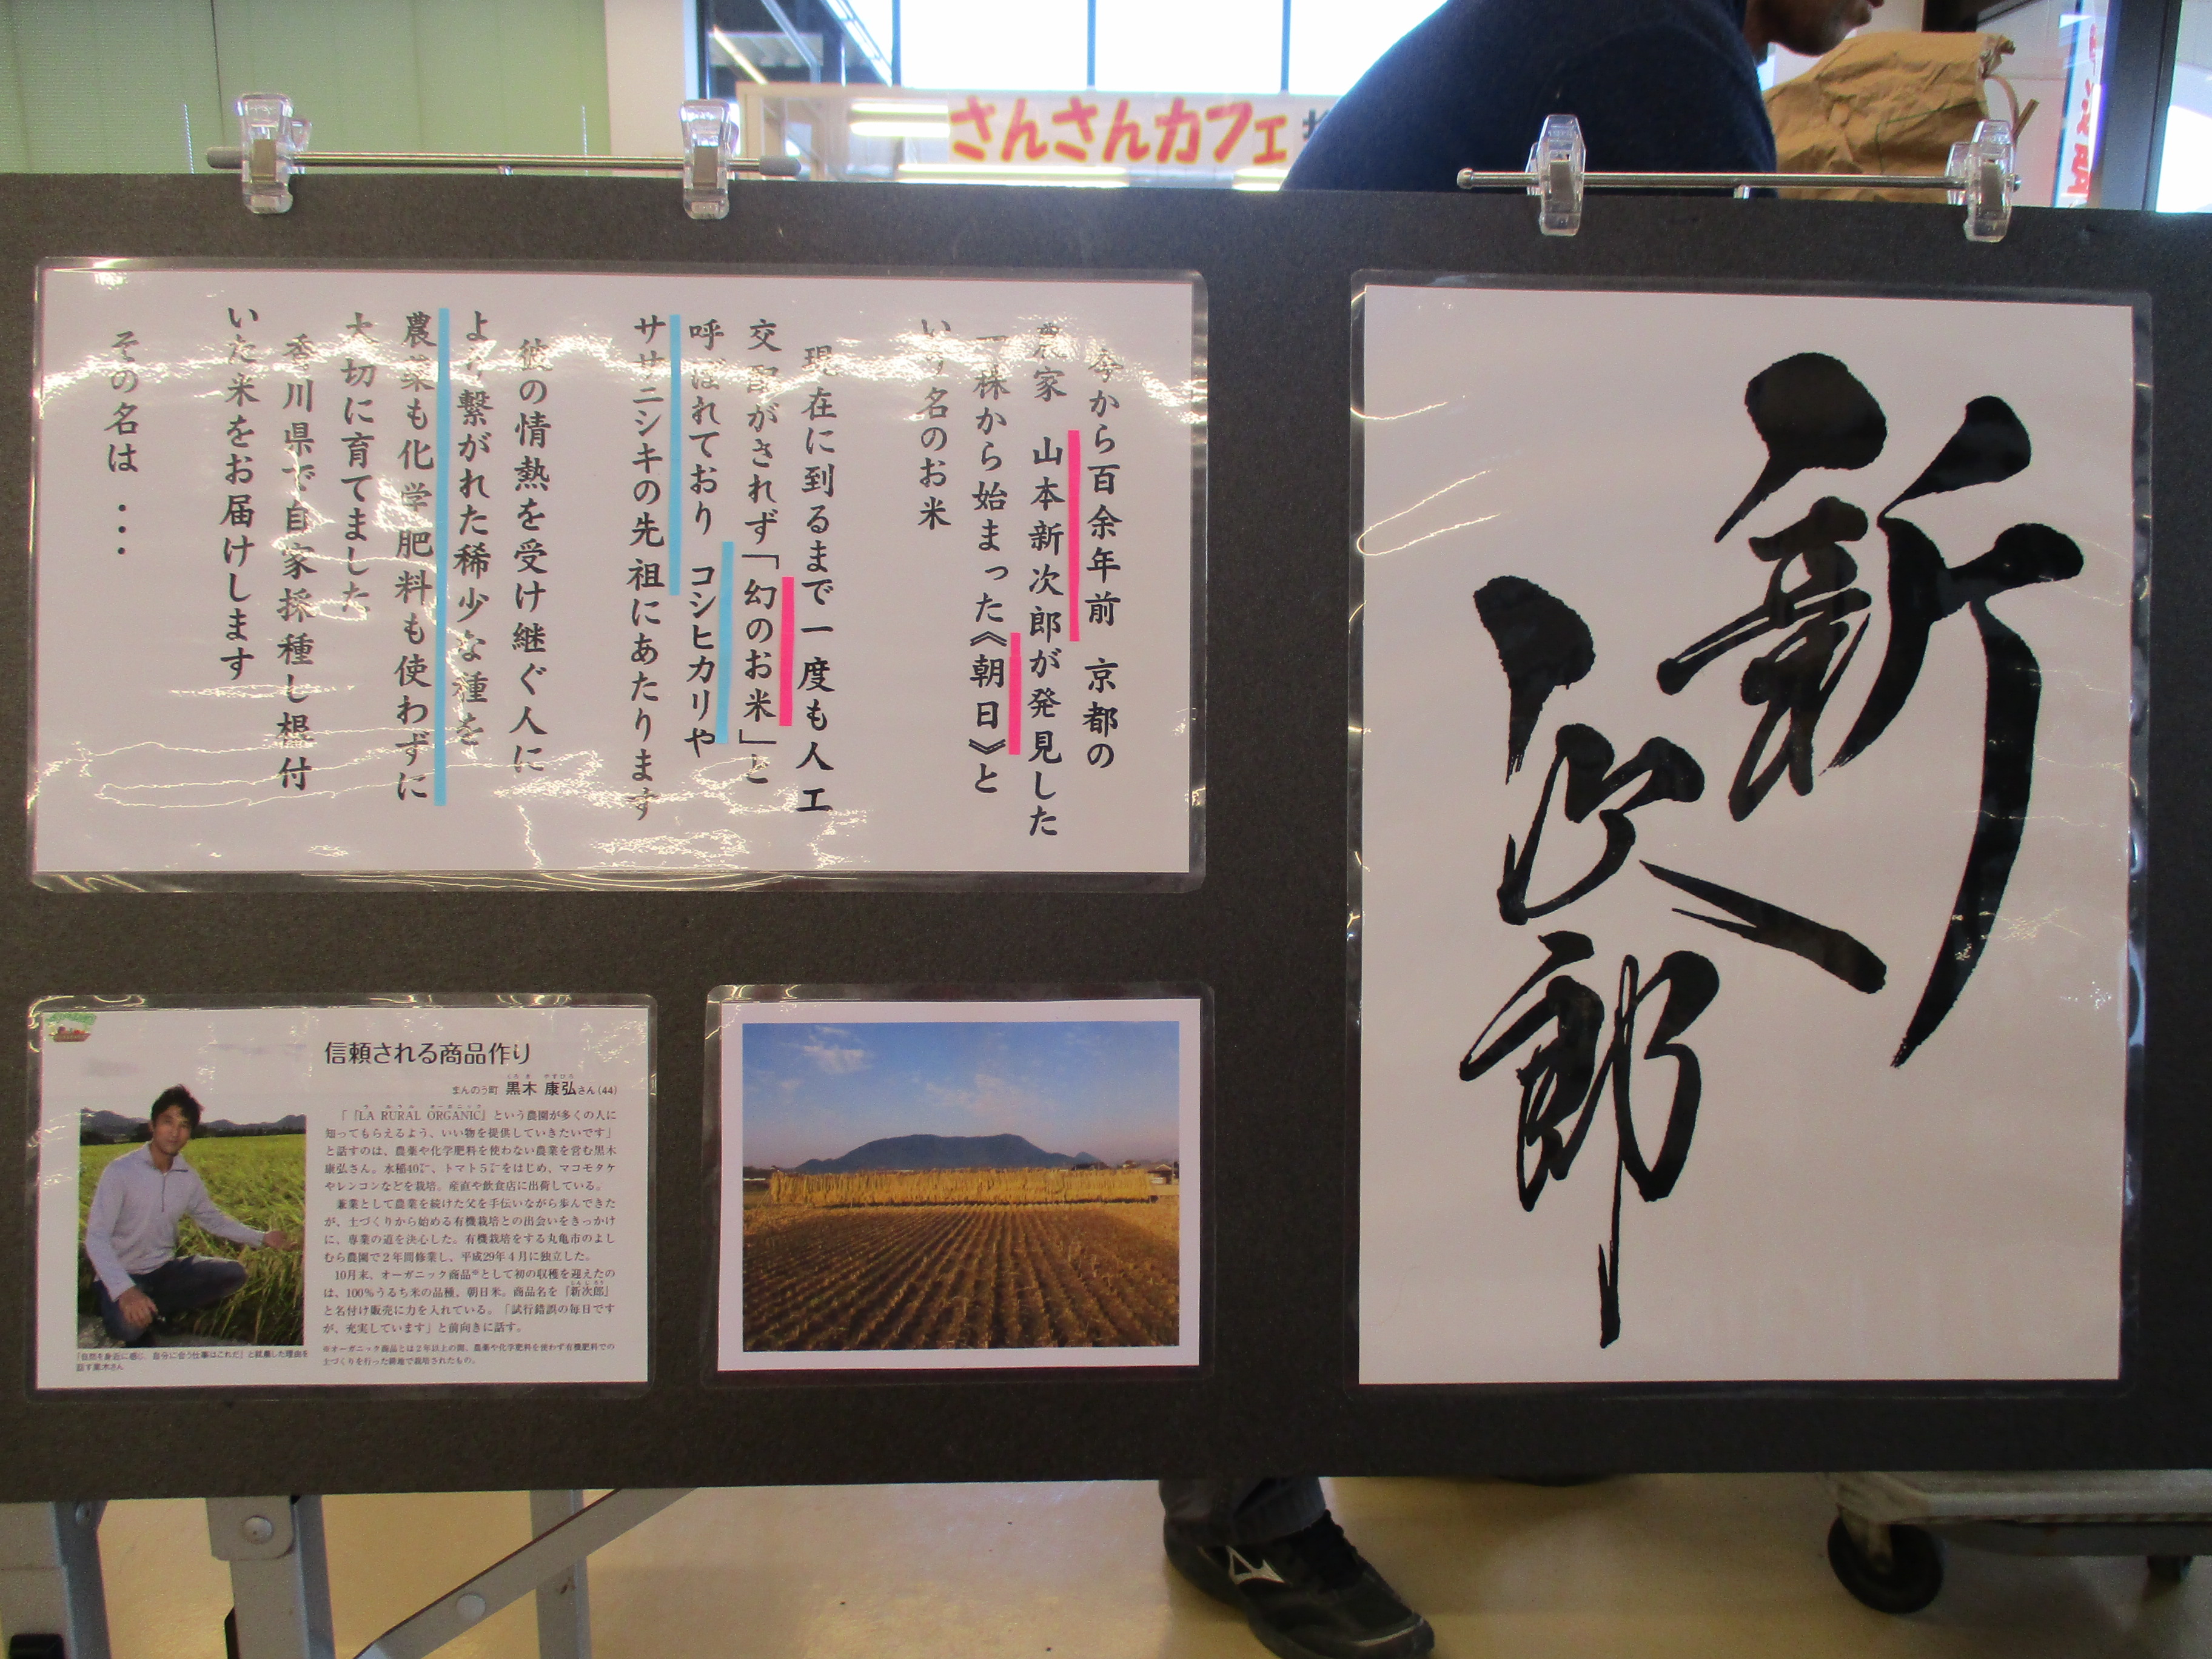 さんさんカフェ
新次郎
今から百余年前 京都の
農家 山本新次郎が発見した
一株から始まった《朝日》と
いう名のお米
現在に到るまで一度も人工
交配がされず「幻のお米」と
呼ばれており コシヒカリや
ササニシキの先祖にあたります
彼の情熱を受け継ぐ人に
より繋がれた稀少な種を
農薬も化学肥料も使わずに
大切に育てました
香川県で自家採種し根付
いた米をお届けします
その名は・・・
信頼される商品作り
まんのう町 黒木 康弘さん(44)
「『LA RURAL ORGANIC』という農園が多くの人に
知ってもらえるよう、いい物を提供していきたいです」
と話すのは、農薬や化学肥料を使わない農業を営む黒木
康弘さん。水稲40㌃、トマト5㌃をはじめ、マコモタケ
やレンコンなどを栽培。産直や飲食店に出荷している。
兼業として農業を続けた父を手伝いながら歩んできた
が、土づくりから始める有機栽培との出会いをきっかけ
に、専業の道を決心した。有機栽培をする丸亀市のよし
むら農園で2年間修業し、平成29年4月に独立した。
10月末、オーガニック商品※として初の収穫を迎えたの
は、100%うるち米の品種、朝日米。商品名を『新次郎』
と名付け販売に力を入れている。「試行錯誤の毎日です
が、充実しています」と前向きに話す。
※オーガニック商品とは2年以上の間、農薬や化学肥料を使わず有機肥料での
土づくりを行った耕地で栽培されたもの。
「自然を身近に感じ、自分に合う仕事はこれだ」と就農した理由を
話す黒木さん